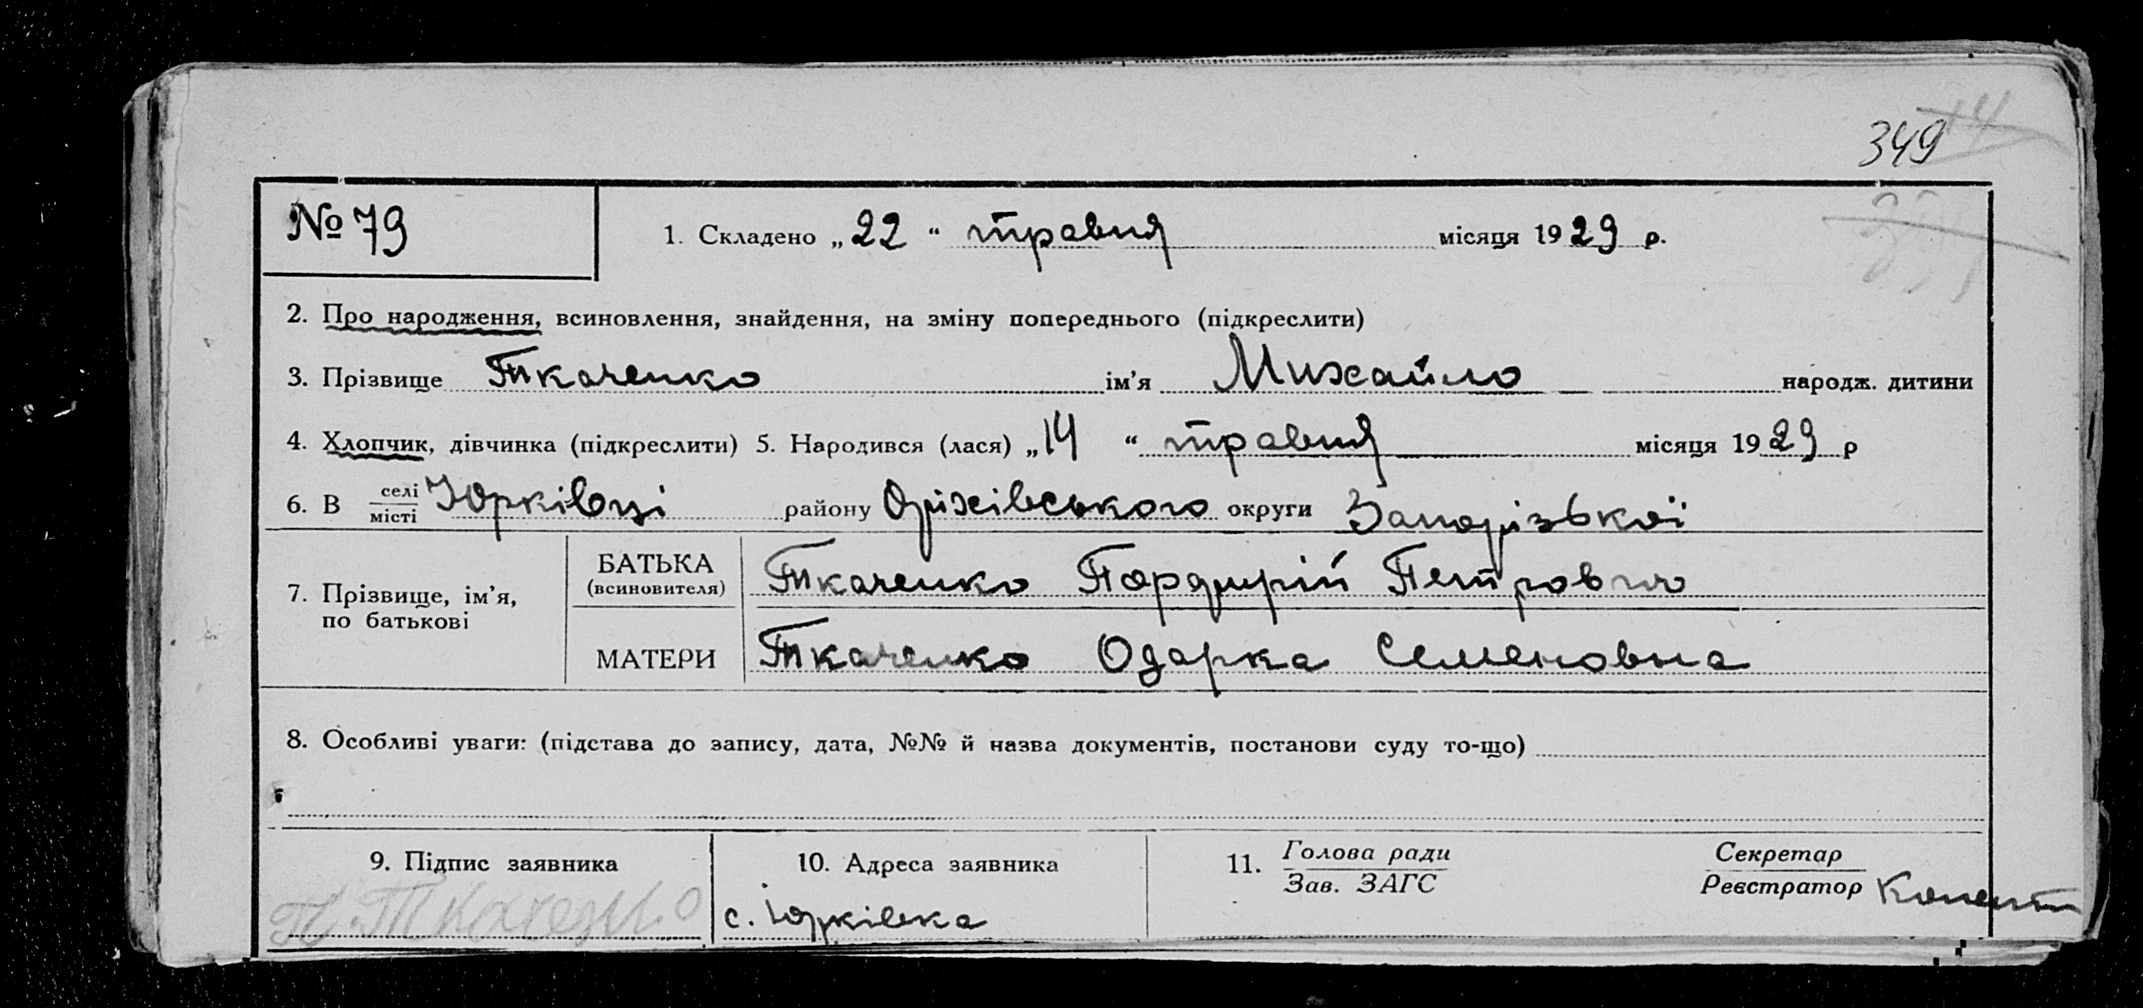 349
№ 79
1. Складено „22“ травня місяця 1929 р.
2. Про народження, всиновлення, знайдення, на зміну попереднього (підкреслити)
3. Прізвище Ткаченко ім'я Михайло народж. дитини
4. Хлопчик, дівчинка (підкреслити) 5. Народився (лася) „14“ травня місяця 1929 р
6. В селі/місті Юрківці району Оріхівського округи Запорізької
7. Прізвище, ім'я, по батькові
БАТЬКА (всиновителя) Ткаченко Порфирій Петрович
МАТЕРИ Ткаченко Одарка Семеновна
8. Особливі уваги: (підстава до запису, дата, №№ й назва документів, постанови суду то-що)
9. Підпис заявника
П. Ткаченко
10. Адреса заявника
с. Юрківка
11. Голова ради
Зав. ЗАГС
Секретар
Реєстратор